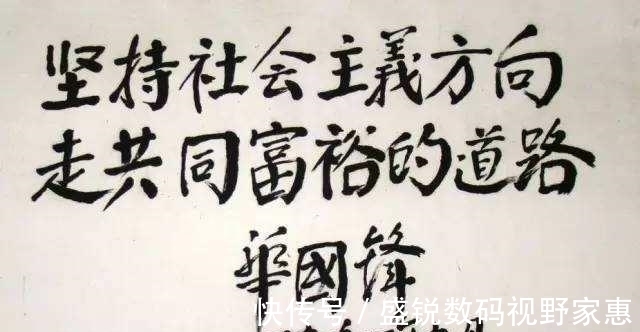 坚持社会主義方向
走共同富裕的道路
華國锋
快传号/盛锐数码视野家惠